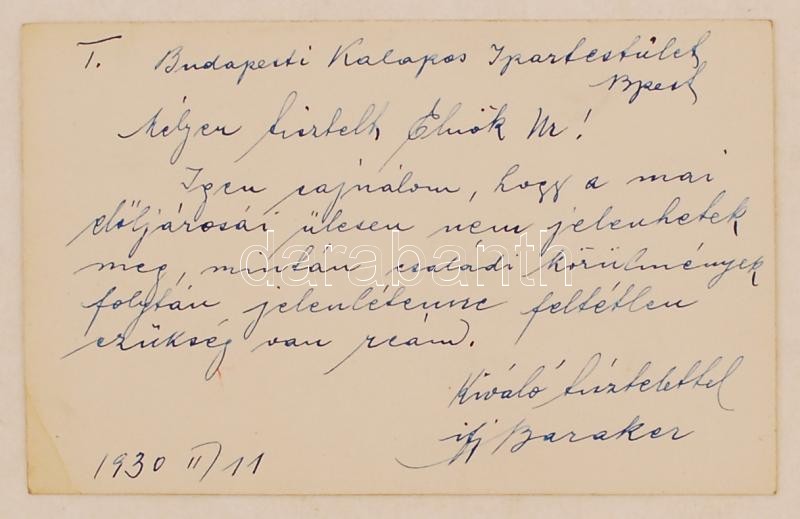 T. Budapesti Kalapos Ipartestület
Bpest
Mélyen tisztelt Elnök Úr!
Igen sajnálom, hogy a mai
előljárosái ülésen nem jelenhetek
meg, mintán családi körülmények
folytán, jelenlétemre feltétlen
szükség van reám.
Kiváló tisztelettel
ifj Baraker
1930 II/11
darabanth.com